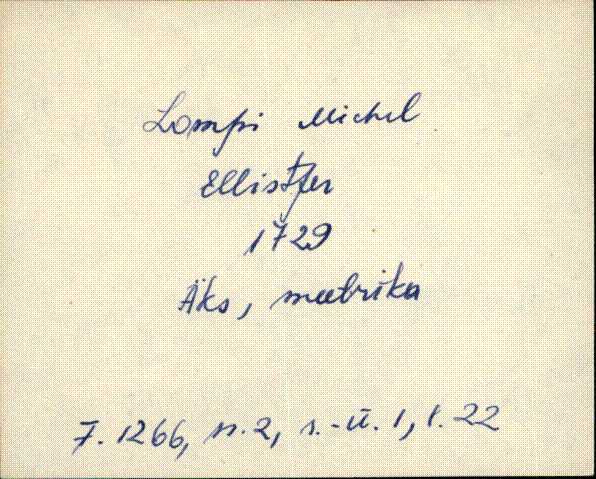 Lompi Michel
Ellistfer
1729
Äks, meetrika
F. 1266, n. 2, s.-ü. 1, l. 22